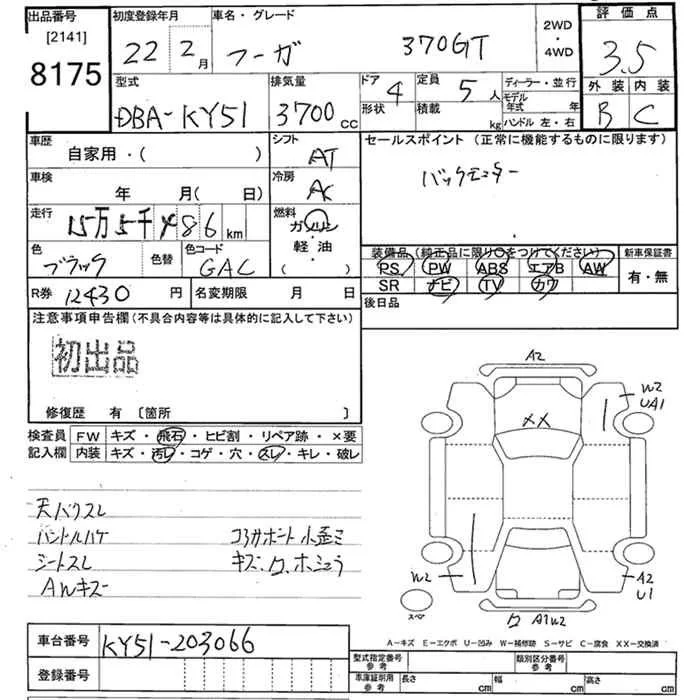 出品番号 [2141] 8175
初度登録年月 22 2月
車名・グレード フーガ 370GT
2WD ・ 4WD
評価点 3.5
外装 B 内装 C
型式 DBA-KY51
排気量 3700cc
ドア 4 形状
定員 5人 積載 kg
ディーラー・並行
モデル年式 年
ハンドル 左・右
車歴 自家用・( )
シフト AT
セールスポイント (正常に機能するものに限ります)
バックモニター
車検 年 月( 日)
冷房 AC
走行 15万5千486km
燃料 ガソリン・軽油・( )
色 ブラック 色替
色コード GAC
装備品(純正品に限り○をつけてください)
PS PW ABS エアB AW
SR ナビ TV カワ
新車保証書 有・無
R券 12430円
名変期限 月 日
後日品
注意事項申告欄(不具合内容等は具体的に記入して下さい)
初出品
修復歴 有〔箇所 〕
検査員記入欄
FW キズ・飛石・ヒビ割・リペア跡・×要
内装 キズ・汚レ・コゲ・穴・スレ・キレ・破レ
天バクスレ
ハンドルハゲ
シートスレ
AWキズ
コアサポート小歪ミ
A2
XX
W2
UA1
W2
A2
U1
A1W2
スペア
A-キズ E-エクボ U-凹み W-補修跡 S-サビ C-腐食 XX-交換済
車台番号 KY51-203066
登録番号
型式指定番号 参考
類別区分番号 参考
車庫証明用 参考 長さ cm 幅 cm 高さ cm